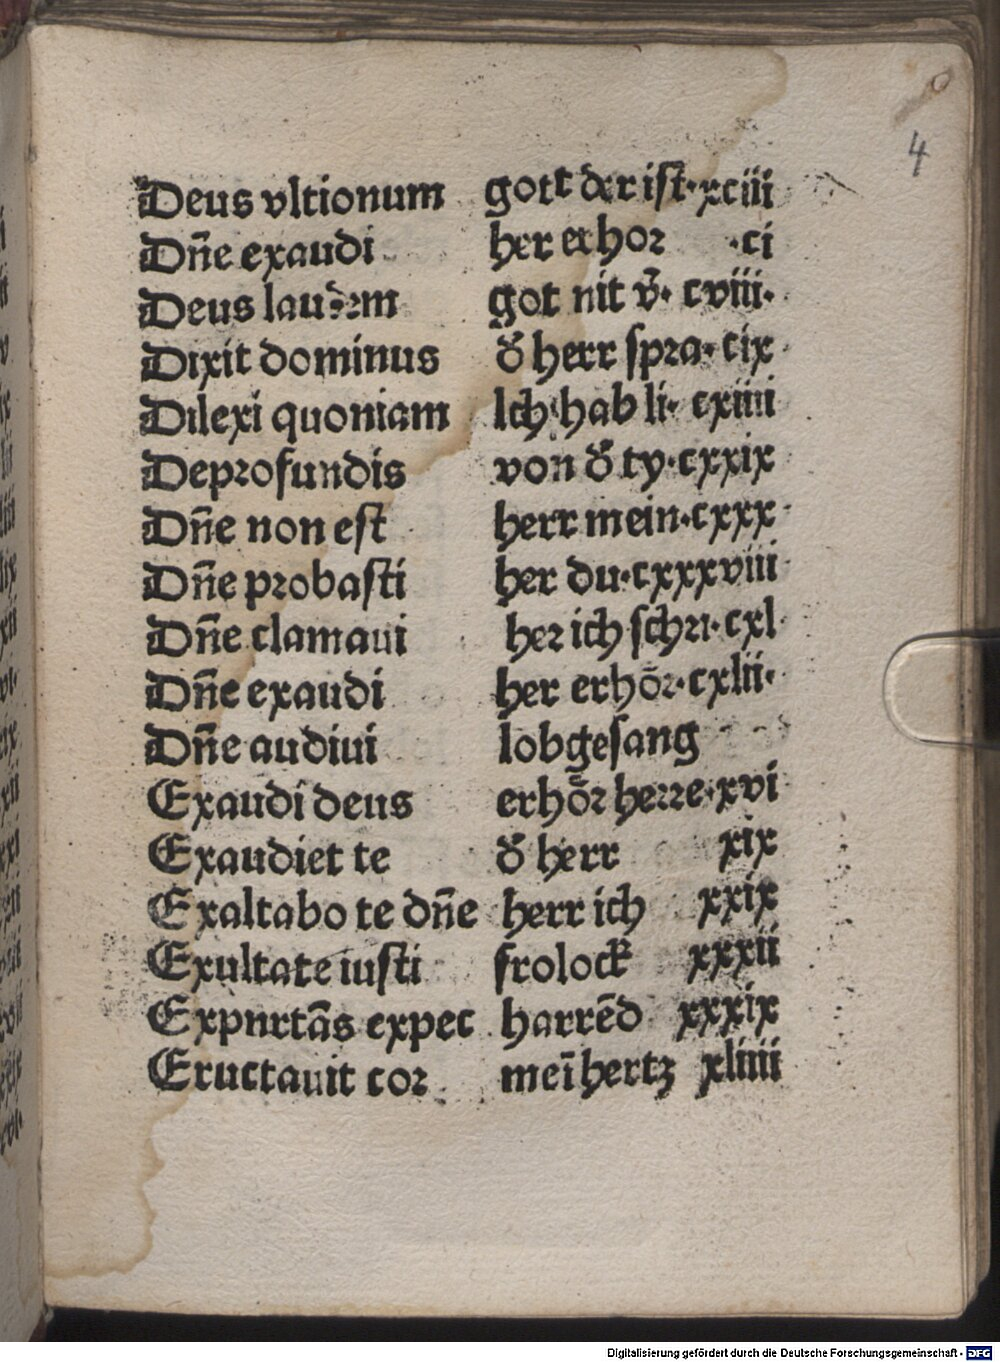 4
Deus vltionum gott der ist·xciii
Dn̄e exaudi her erhoꝛ ·ci
Deus laudem got nit v̄· cviii·
Dixit dominus d̾ herr spꝛa·cix
Dilexi quoniam Ich hab li· cxiiii
Depꝛofundis von d̾ ty·cxxix
Dn̄e non est herr mein·cxxx·
Dn̄e pꝛobasti her du·cxxxviii
Dn̄e clamaui heꝛ ich schꝛı·cxl
Dn̄e exaudi her erhōꝛ·cxlii·
Dn̄e audiui lobgesang
Exaudi deus erhoͤꝛ herꝛe·xvi
Exaudiet te d̾ herr xix
Exaltabo te dn̄e herr ich xxix
Exultate iusti frolock̄ xxxii
Expnrtās expec harrēd xxxix
Eructauit coꝛ meī hertz xliiii
Digitalisierung gefördert durch die Deutsche Forschungsgemeinschaft - DFG